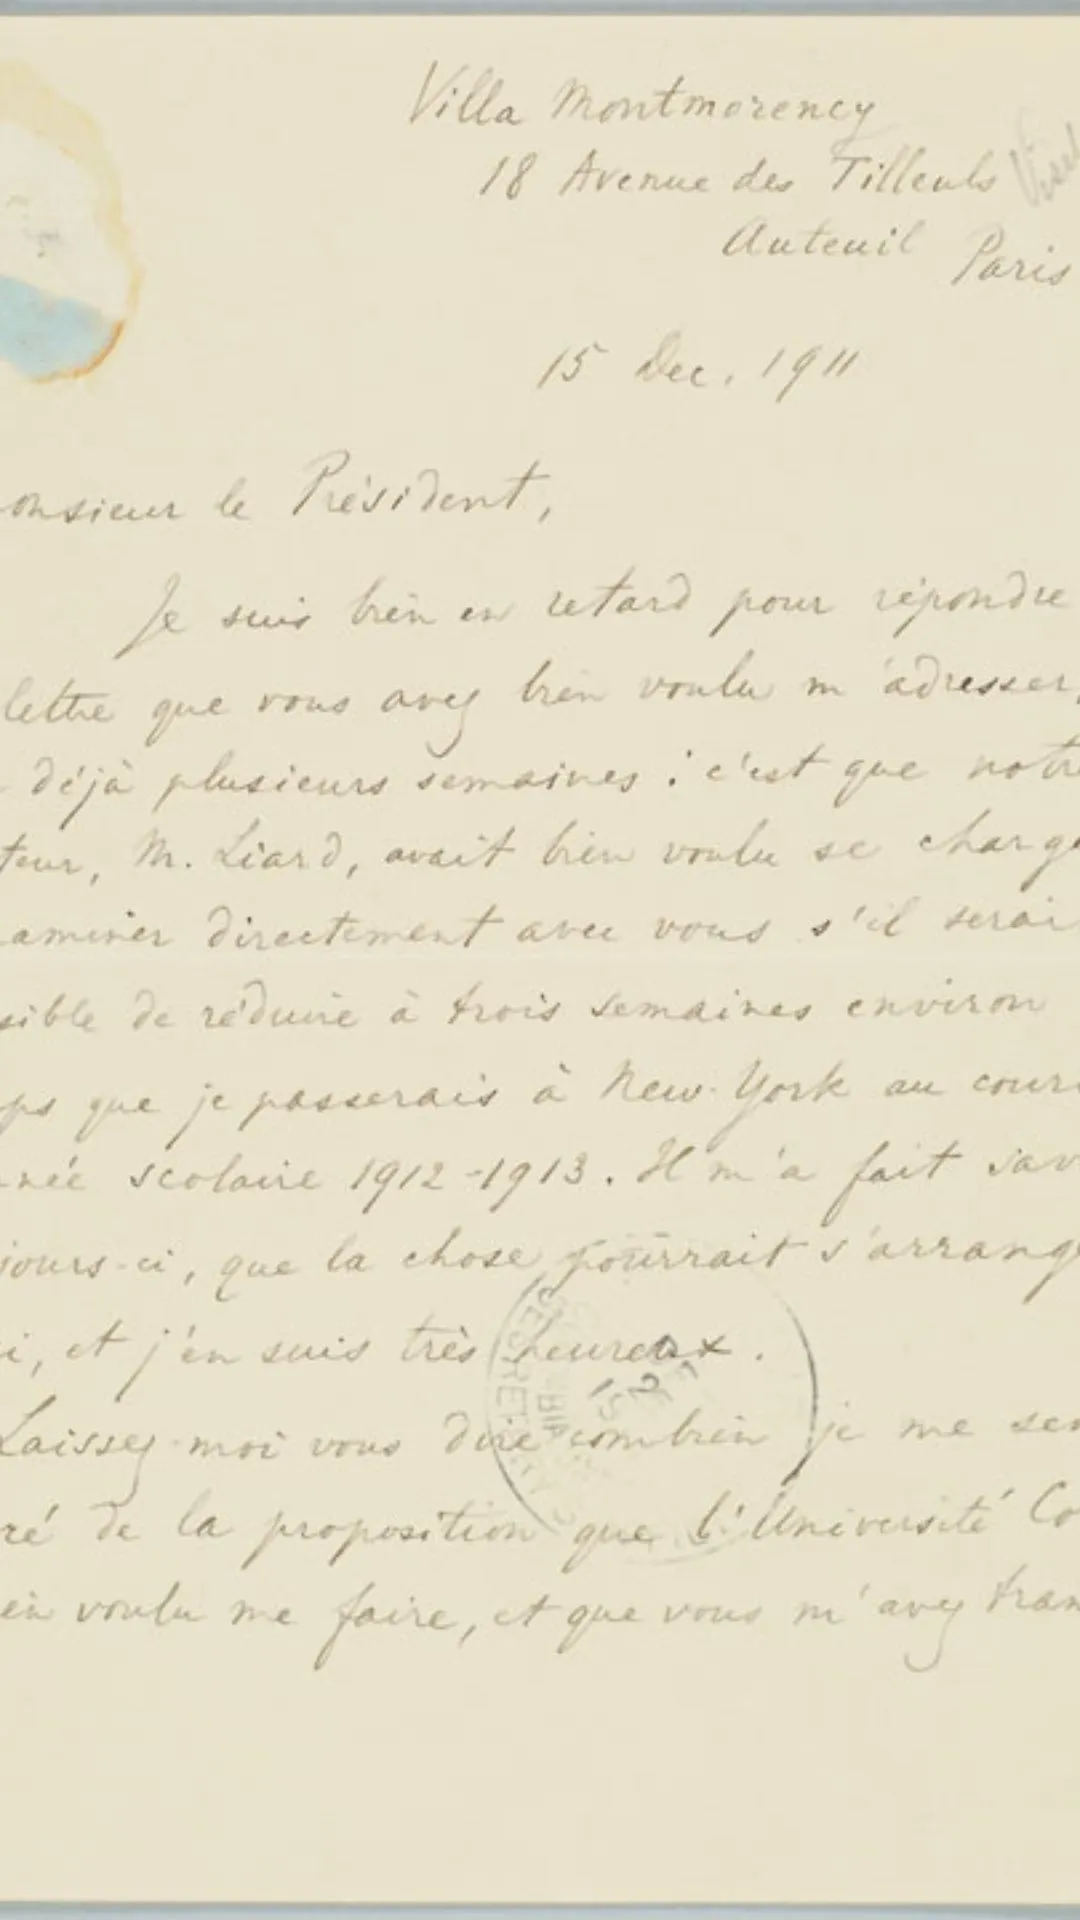 Villa Montmorency
18 Avenue des Tilleuls
Auteuil Paris
15 Dec. 1911
onsieur le Président,
Je suis bien en retard pour répondre
lettre que vous avez bien voulu m'adresser,
déjà plusieurs semaines : c'est que notre
teur, M. Liard, avait bien voulu se charge
aminer directement avec vous s'il serai
sible de réduire à trois semaines environ
ps que je passerais à New-York au cours
née scolaire 1912-1913. Il m'a fait sav
jours-ci, que la chose pourrait s'arrange
i, et j'en suis très heureux.
Laissez-moi vous dire combien je me sen
ré de la proposition que l'Université Co
en voulu me faire, et que vous m'avez tran